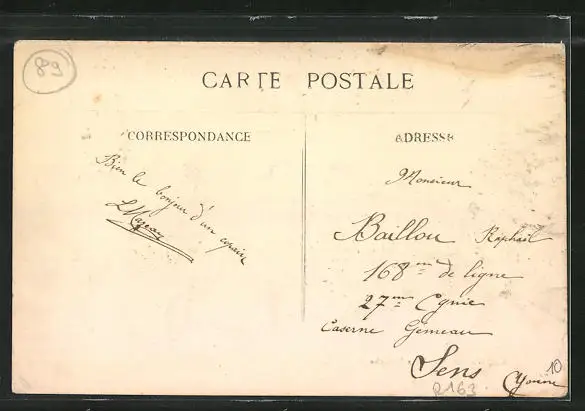 89
CARTE POSTALE
CORRESPONDANCE
Bien le bonjour d'un copain
ADRESSE
Monsieur
Baillou Raphaël
168me de ligne
27me Cgnie
Caserne Gémeau
Sens
Yonne
10
2163